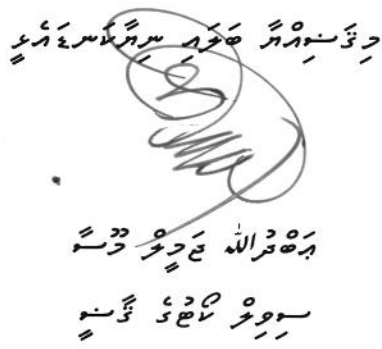 މިޤަޟިއްޔާ ބަލައި ނިޔާކަނޑައެޅީ
ޢަބްދުﷲ ޖަމީލް މޫސާ
ސިވިލް ކޯޓުގެ ޤާޟީ